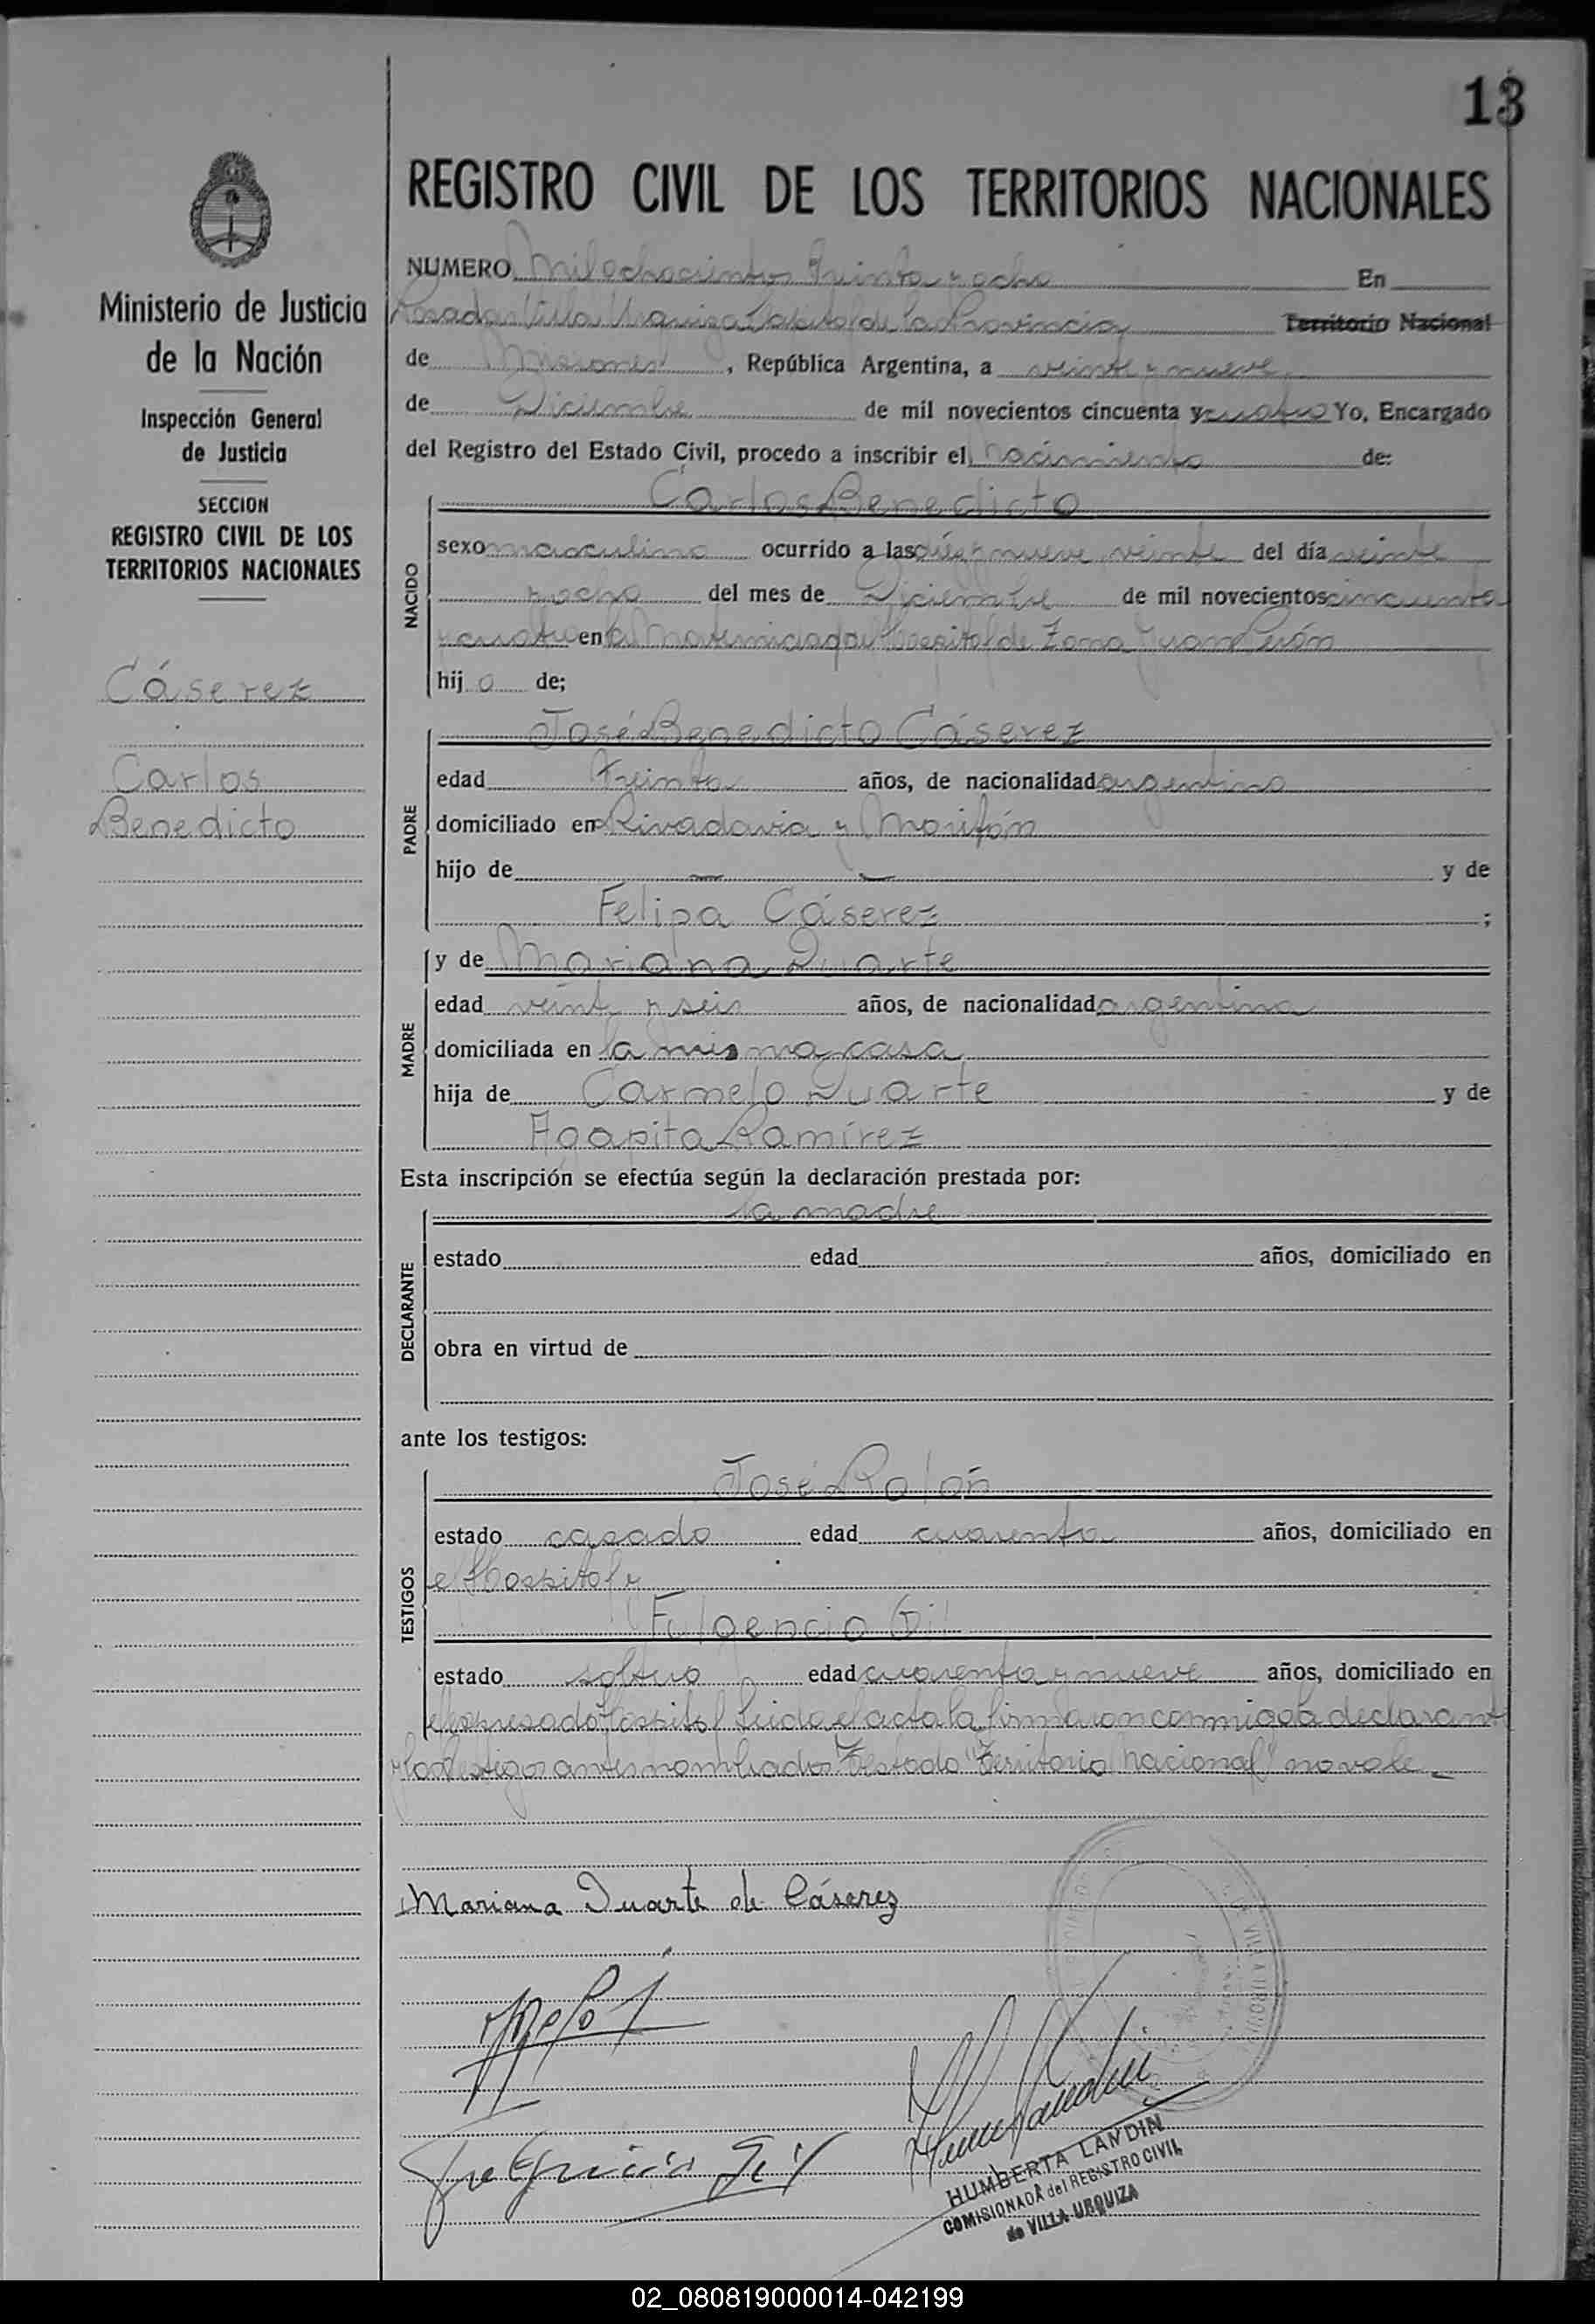 13
REGISTRO CIVIL DE LOS TERRITORIOS NACIONALES
Ministerio de Justicia
de la Nación
Inspección General
de Justicia
SECCION
REGISTRO CIVIL DE LOS
TERRITORIOS NACIONALES
Cáserez
Carlos
Benedicto
NUMERO Mil ochocientos treinta y ocho En
Posadas Villa Urquiza Capital de la Provincia Territorio Nacional
de Misiones, República Argentina, a veinte y nueve
de Diciembre de mil novecientos cincuenta y cuatro Yo, Encargado
del Registro del Estado Civil, procedo a inscribir el nacimiento de:
Carlos Benedicto
NACIDO
sexo masculino ocurrido a las diez y nueve veinte del día veinte
y ocho del mes de Diciembre de mil novecientos cincuenta
y cuatro en la Maternidad del Hospital de Zona Juan Perón
hijo de;
José Benedicto Cáserez
PADRE
edad treinta años, de nacionalidad argentina
domiciliado en Rivadavia y
hijo de — — y de
Felipa Cáserez ;
y de Mariana Duarte
MADRE
edad veinte y seis años, de nacionalidad argentina
domiciliada en la misma casa
hija de Carmelo Duarte y de
Agapita Ramírez
Esta inscripción se efectúa según la declaración prestada por:
la madre
DECLARANTE
estado edad años, domiciliado en
obra en virtud de
ante los testigos:
José Rolón
TESTIGOS
estado casado edad cuarenta años, domiciliado en
el Hospital y
Fulgencio Gil
estado soltero edad cuarenta y nueve años, domiciliado en
el expresado Hospital Leida el acta la firmaron conmigo la declarante
y los testigos antes nombrados Testado "Territorio Nacional" no vale.-
Mariana Duarte de Cáserez
Fulgencio Gil
HUMBERTA LANDIN
COMISIONADA del REGISTRO CIVIL
de VILLA URQUIZA
02_080819000014-042199